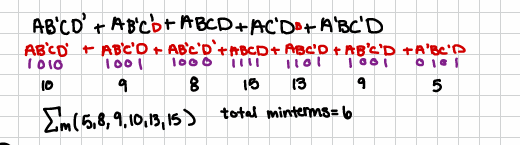 AB'CD' + AB'C'D + ABCD + AC'D + A'BC'D
AB'CD' + AB'C'D + AB'C'D' + ABCD + ABC'D + AB'C'D + A'BC'D
1010 1001 1000 1111 1101 1001 0101
10 9 8 15 13 9 5
Σm(5,8,9,10,13,15) total minterms=6